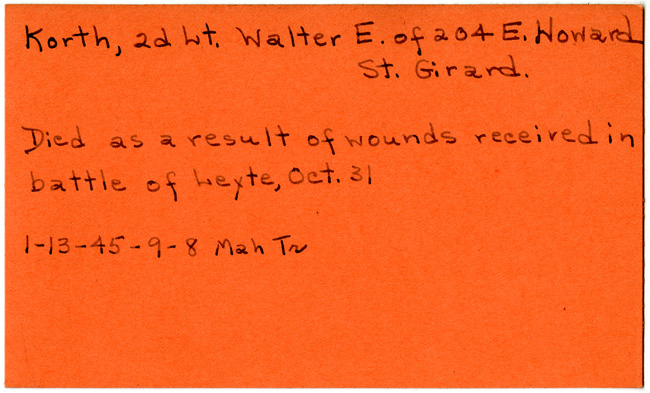 Korth, 2d Lt. Walter E. of 204 E. Howard
St. Girard.
Died as a result of wounds received in
battle of Leyte, Oct. 31
1-13-45-9-8 Mah Tr